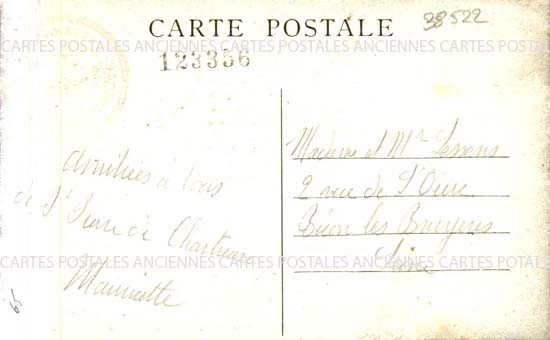 CARTE POSTALE
38522
123356
CARTES POSTALES ANCIENNES CARTES POSTALES ANCIENNES CARTES POSTALES
Amitiées à tous
de St Pierre de Chartreuse
Mauricette
Madame et Mr
2 rue de l'Oise
Bécon les Bruyères
Seine
CARTES POSTALES ANCIENNES CARTES POSTALES ANCIENNES CARTES POSTALES
65